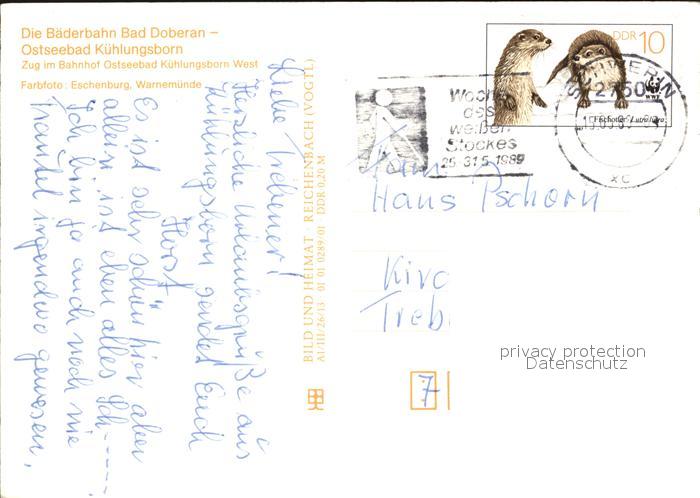 Die Bäderbahn Bad Doberan –
Ostseebad Kühlungsborn
Zug im Bahnhof Ostseebad Kühlungsborn West
Farbfoto: Eschenburg, Warnemünde
Liebe
Herzliche Urlaubsgrüße aus
Kühlungsborn sendet Euch
Horst
Es ist sehr schön hier aber
allein ist eben alles Sch-----
Ich bin ja auch noch nie
irgendwo gewesen,
BILD UND HEIMAT · REICHENBACH (VOGTL)
A1/III/26/13 01 01 0289/01 DDR 0,20 M
DDR 10
WWF
Fischotter/Lutra lutra
Woche
des
weißen
Stockes
25-31.5.1989
SCHWERIN
2750
xc
Hans Pschorn
Kirc
Treb
7
privacy protection
Datenschutz